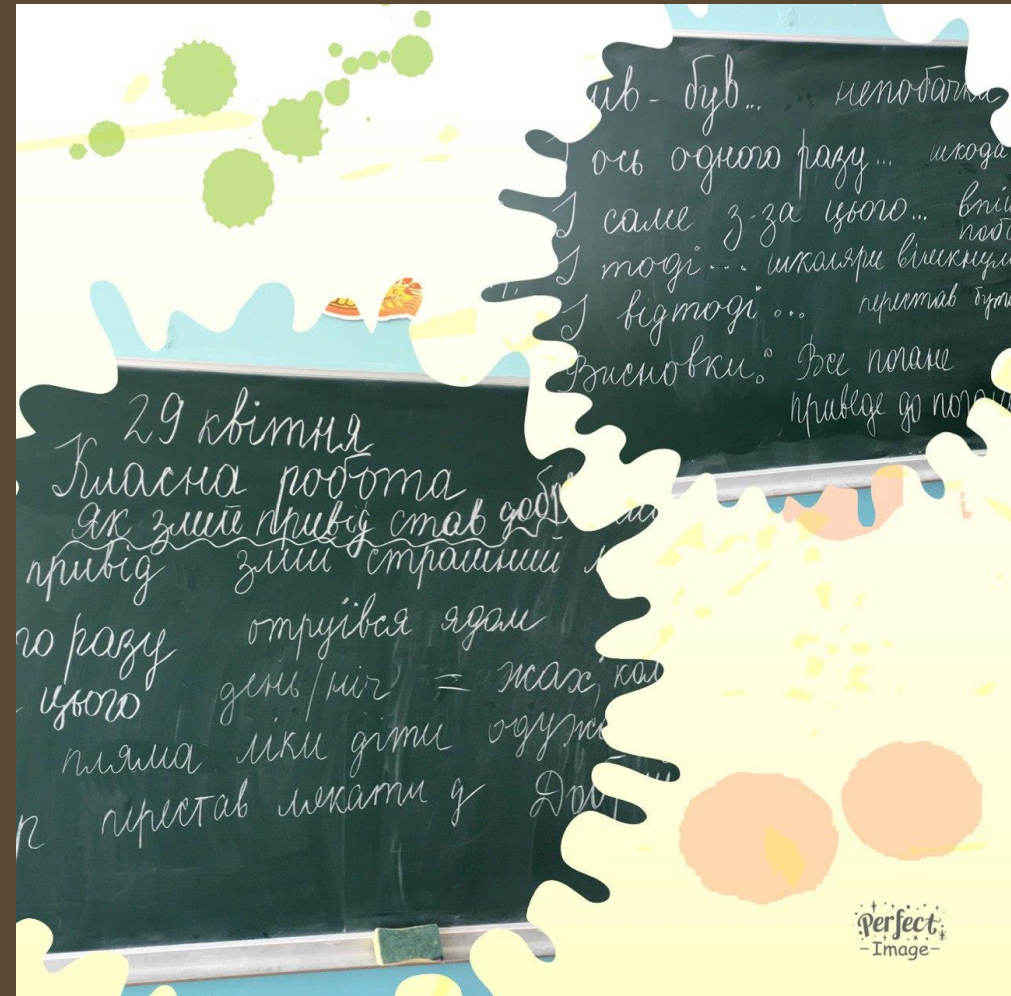 був... 
ось одного разу... шкода
І саме з-за цього...
І тоді... школярі
І відтоді... перестав
Висновки: Все погане
приведе до
29 квітня
Класна робота
Як злий привід став
привід злий страшний
го разу отруївся ядом
цього день/ніч = жах,
пляма ліки діти
перестав лякати д
Perfect
-Image-